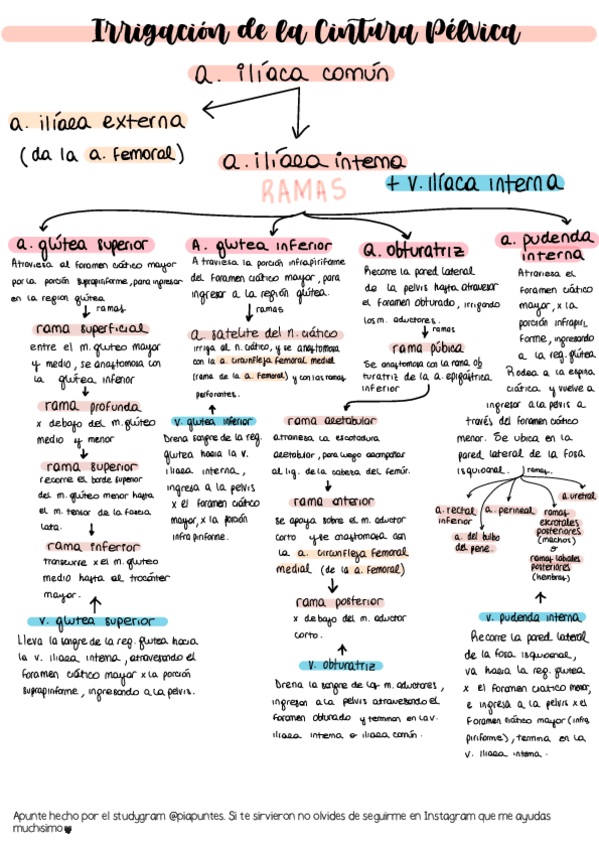 Irrigación de la Cintura Pélvica
a. ilíaca común
a. ilíaca externa
(da la a. femoral)
a. ilíaca interna
+ v. ilíaca interna
RAMAS
a. glútea superior
Atraviesa el foramen ciático mayor
por la porción suprapiriforme, para ingresar
en la region glútea
ramas
rama superficial
entre el m. gluteo mayor
y medio, se anastomosa con
la glutea inferior
rama profunda
x debajo del m. glúteo
medio y menor
rama superior
recorre el borde superior
del m. glúteo menor hasta
el m. tensor de la fascia
lata.
rama inferior
transcurre x el m. gluteo
medio hasta el trocánter
mayor.
v. glutea superior
Lleva la sangre de la reg. glutea hacia
la v. iliaca interna, atravesando el
foramen ciático mayor x la porción
suprapiriforme, ingresando a la pelvis.
A. glutea inferior
Atraviesa la porción infrapiriforme
del foramen ciático mayor, para
ingresar a la región glútea.
ramas
a. satelite del n. ciático
irriga al n. ciático, y se anastomosa
con la a. circunfleja femoral medial
(rama de la a. femoral) y con las ramas
perforantes.
v. glutea inferior
Drena sangre de la reg.
glutea hacia la v.
iliaca interna,
ingresa a la pelvis
x el foramen ciático
mayor, x la porción
infrapiriforme.
a. obturatriz
Recorre la pared lateral
de la pelvis hasta atravesar
el foramen obturado, irrigando
los m. aductores.
ramas
rama púbica
Se anastomosa con la rama ob
turatriz de la a. epigástrica
inferior
rama acetabular
atraviesa la escotadura
acetabular, para luego acompañar
al lig. de la cabeza del femúr.
rama anterior
se apoya sobre el m. aductor
corto y se anastomosa con
la a. circunfleja femoral
medial (de la a. femoral)
rama posterior
x debajo del m. aductor
corto.
v. obturatriz
Drena la sangre de los m. aductores,
ingresan a la pelvis atravesando el
foramen obturado y terminan en la v.
iliaca interna o iliaca común.
a. pudenda
interna
Atraviesa el
foramen ciático
mayor, x la
porción infrapiri
forme, ingresando
a la reg. glútea
Rodea a la espina
ciática y vuelve a
ingresar a la pelvis a
través del foramen ciático
menor. Se ubica en la
pared lateral de la fosa
isquioanal.
ramas
a. rectal
inferior
a. perineal
a. del bulbo
del pene
ramas
escrotales
posteriores
(machos)
o
ramas labiales
posteriores
(hembras)
a. uretral
v. pudenda interna
Recorre la pared lateral
de la fosa isquioanal,
va hacia la reg. glutea
x el foramen ciatico menor,
e ingresa a la pelvis x el
foramen ciático mayor (infra
piriforme), termina en la
v. iliaca interna.
Apunte hecho por el studygram @piapuntes. Si te sirvieron no olvides de seguirme en Instagram que me ayudas
muchsimo